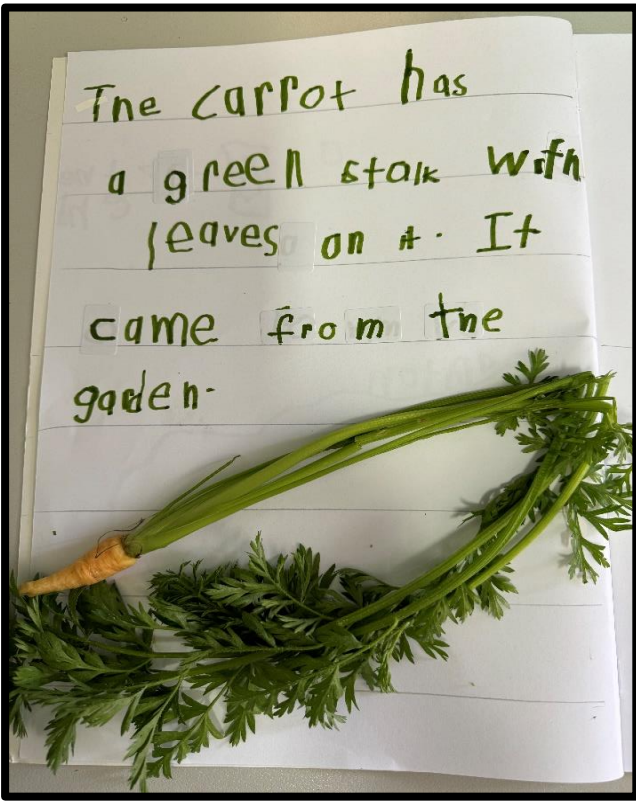 The carrot has
a green stalk with
leaves on it. It
came from the
garden.